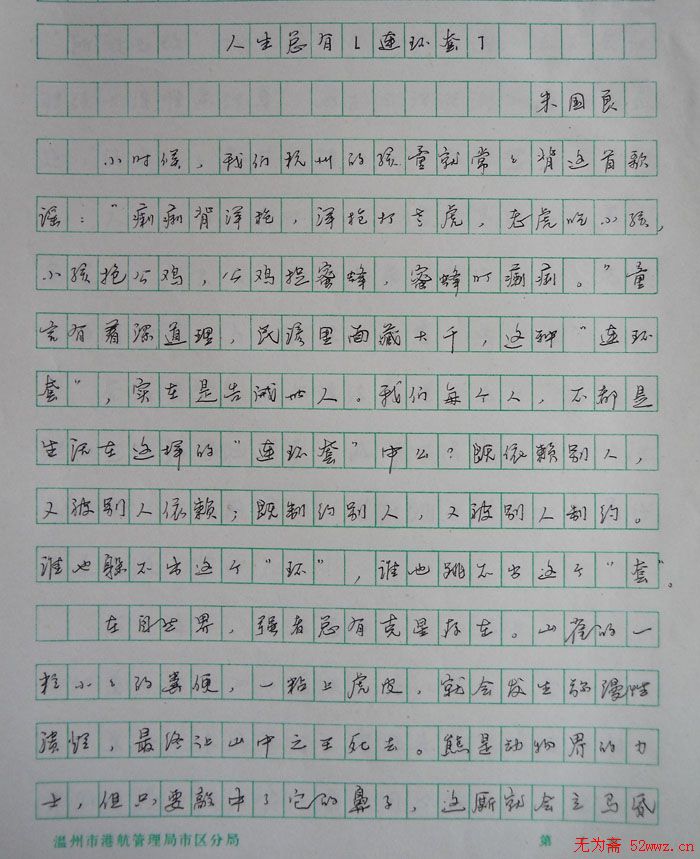 人生总有「连环套」
朱国良
小时候，我们杭州的孩童就常々背这首歌
谣："痢痢背洋枪，洋枪打老虎，老虎吃小孩，
小孩抱公鸡，公鸡捉蜜蜂，蜜蜂叮痢痢。"童
言有着深道理，民谣里面藏大千，这种"连环
套"，实在是告诫世人。我们每个人，不都是
生活在这样的"连环套"中么？既依赖别人，
又被别人依赖；既制约别人，又被别人制约。
谁也躲不出这个"环"，谁也跳不出这个"套"。
在自然界，强者总有克星存在。山雀的一
粒小々的粪便，一粘上虎皮，就会发生弥漫性
溃烂，最终让山中之王死去。熊是动物界的力
士，但只要敲中了它的鼻子，这厮就会立马昏
温州市港航管理局市区分局 第
无为斋 52wwz.cn